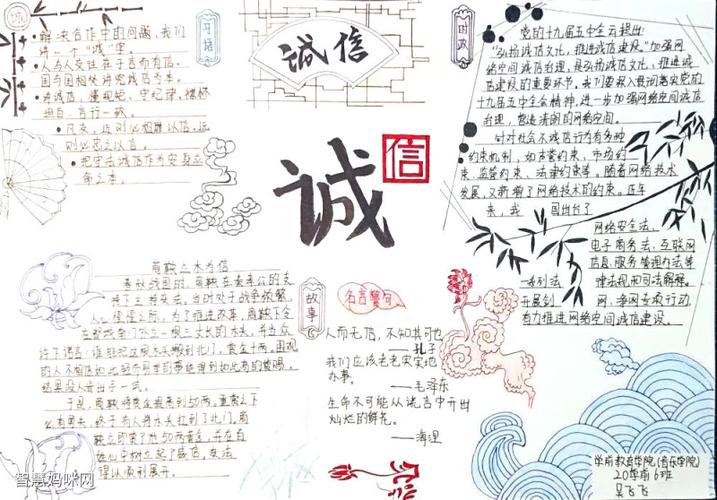 诚
习语
解决合作中的问题,我们
讲一个"诚"字。
人与人交往在于言而有信,
国与国相处讲究诚信为本。
讲诚信、懂规矩、守纪律,襟怀
坦白、言行一致。
凡交,近则必相靡以信,远
则必忠之以言。
把守法诚信作为安身立
命之本。
诚信
诚
信
时政
党的十九届五中全会提出
"弘扬诚信文化,推进诚信建设。"加强网
络空间诚信治理,是弘扬诚信文化、推进诚
信建设的重要环节。我们要深入贯彻落实党的
十九届五中全会精神,进一步加强网络空间诚信
治理,营造清朗的网络空间。
针对社会不诚信行为有多种
约束机制,如声誉约束、市场约
束、监管约束、法律约束等。随着网络技术
发展,又新增了网络技术的约束。近年
来,我国出台了
网络安全法、
电子商务法、互联网
信息服务管理办法等
一系列法律法规和司法解释。
开展剑网、净网等专项行动
有力推进网络空间诚信建设。
商鞅立木为信
春秋战国时,商鞅在秦孝公的支
持下主持变法。当时处于战争频繁、
人心惶惶之际,为了推进改革,商鞅下令
在都城南门外立一根三丈长的木头,并当众
许下诺言:谁能把这根木头搬到北门,赏金十两。围观
的人不相信如此轻而易举的事能得到如此高的赏赐,
结果没人肯出手一试。
于是,商鞅将赏金提高到50两。重赏之下
必有勇夫,终于有人将木头扛到了北门。商
鞅立即赏了他50两黄金,并在百
姓心中树立起了威信,变法
得以顺利展开。
故事
名言警句
人而无信,不知其可也
——孔子
我们应该老老实实地
办事。
——毛泽东
生命不可能从谎言中开出
灿烂的鲜花。
——海涅
学前教育学院(音乐学院)
20学前6班
吴飞飞
智慧妈咪网